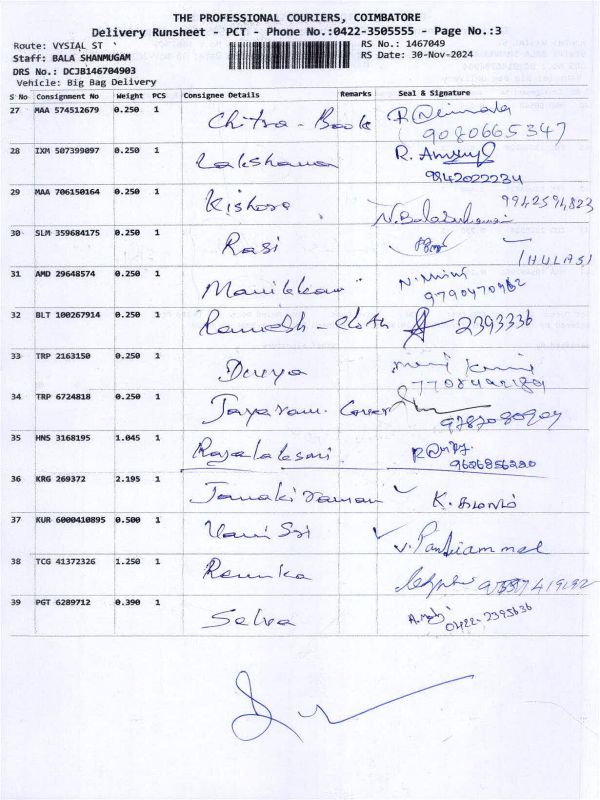 THE PROFESSIONAL COURIERS, COIMBATORE
Delivery Runsheet - PCT - Phone No.:0422-3505555 - Page No.:3
Route: VYSIAL ST RS No.: 1467049
Staff: BALA SHANMUGAM RS Date: 30-Nov-2024
DRS No.: DCJB146704903
Vehicle: Big Bag Delivery
S No Consignment No Weight PCS Consignee Details Remarks Seal & Signature
27 MAA 574512679 0.250 1 Chitra - Book
9080665347
28 IXM 507399097 0.250 1 Lakshana R.
9942022234
29 MAA 706150164 0.250 1 Kishore 9942594823
30 SLM 359684175 0.250 1 Rasi THULASI
31 AMD 29648574 0.250 1 Manikkam N.
9790470962
32 BLT 100267914 0.250 1 Ramesh - cloth 2393336
33 TRP 2163150 0.250 1 Divya
34 TRP 6724818 0.250 1 Jayaram
35 HNS 3168195 1.045 1 Rajalaksmi
9626856280
36 KRG 269372 2.195 1 Janaki raman K.
37 KUR 6000410895 0.500 1 Vani Sri V. Pandiammal
38 TCG 41372326 1.250 1 Renuka
39 PGT 6289712 0.390 1 Selva
0422-2395636